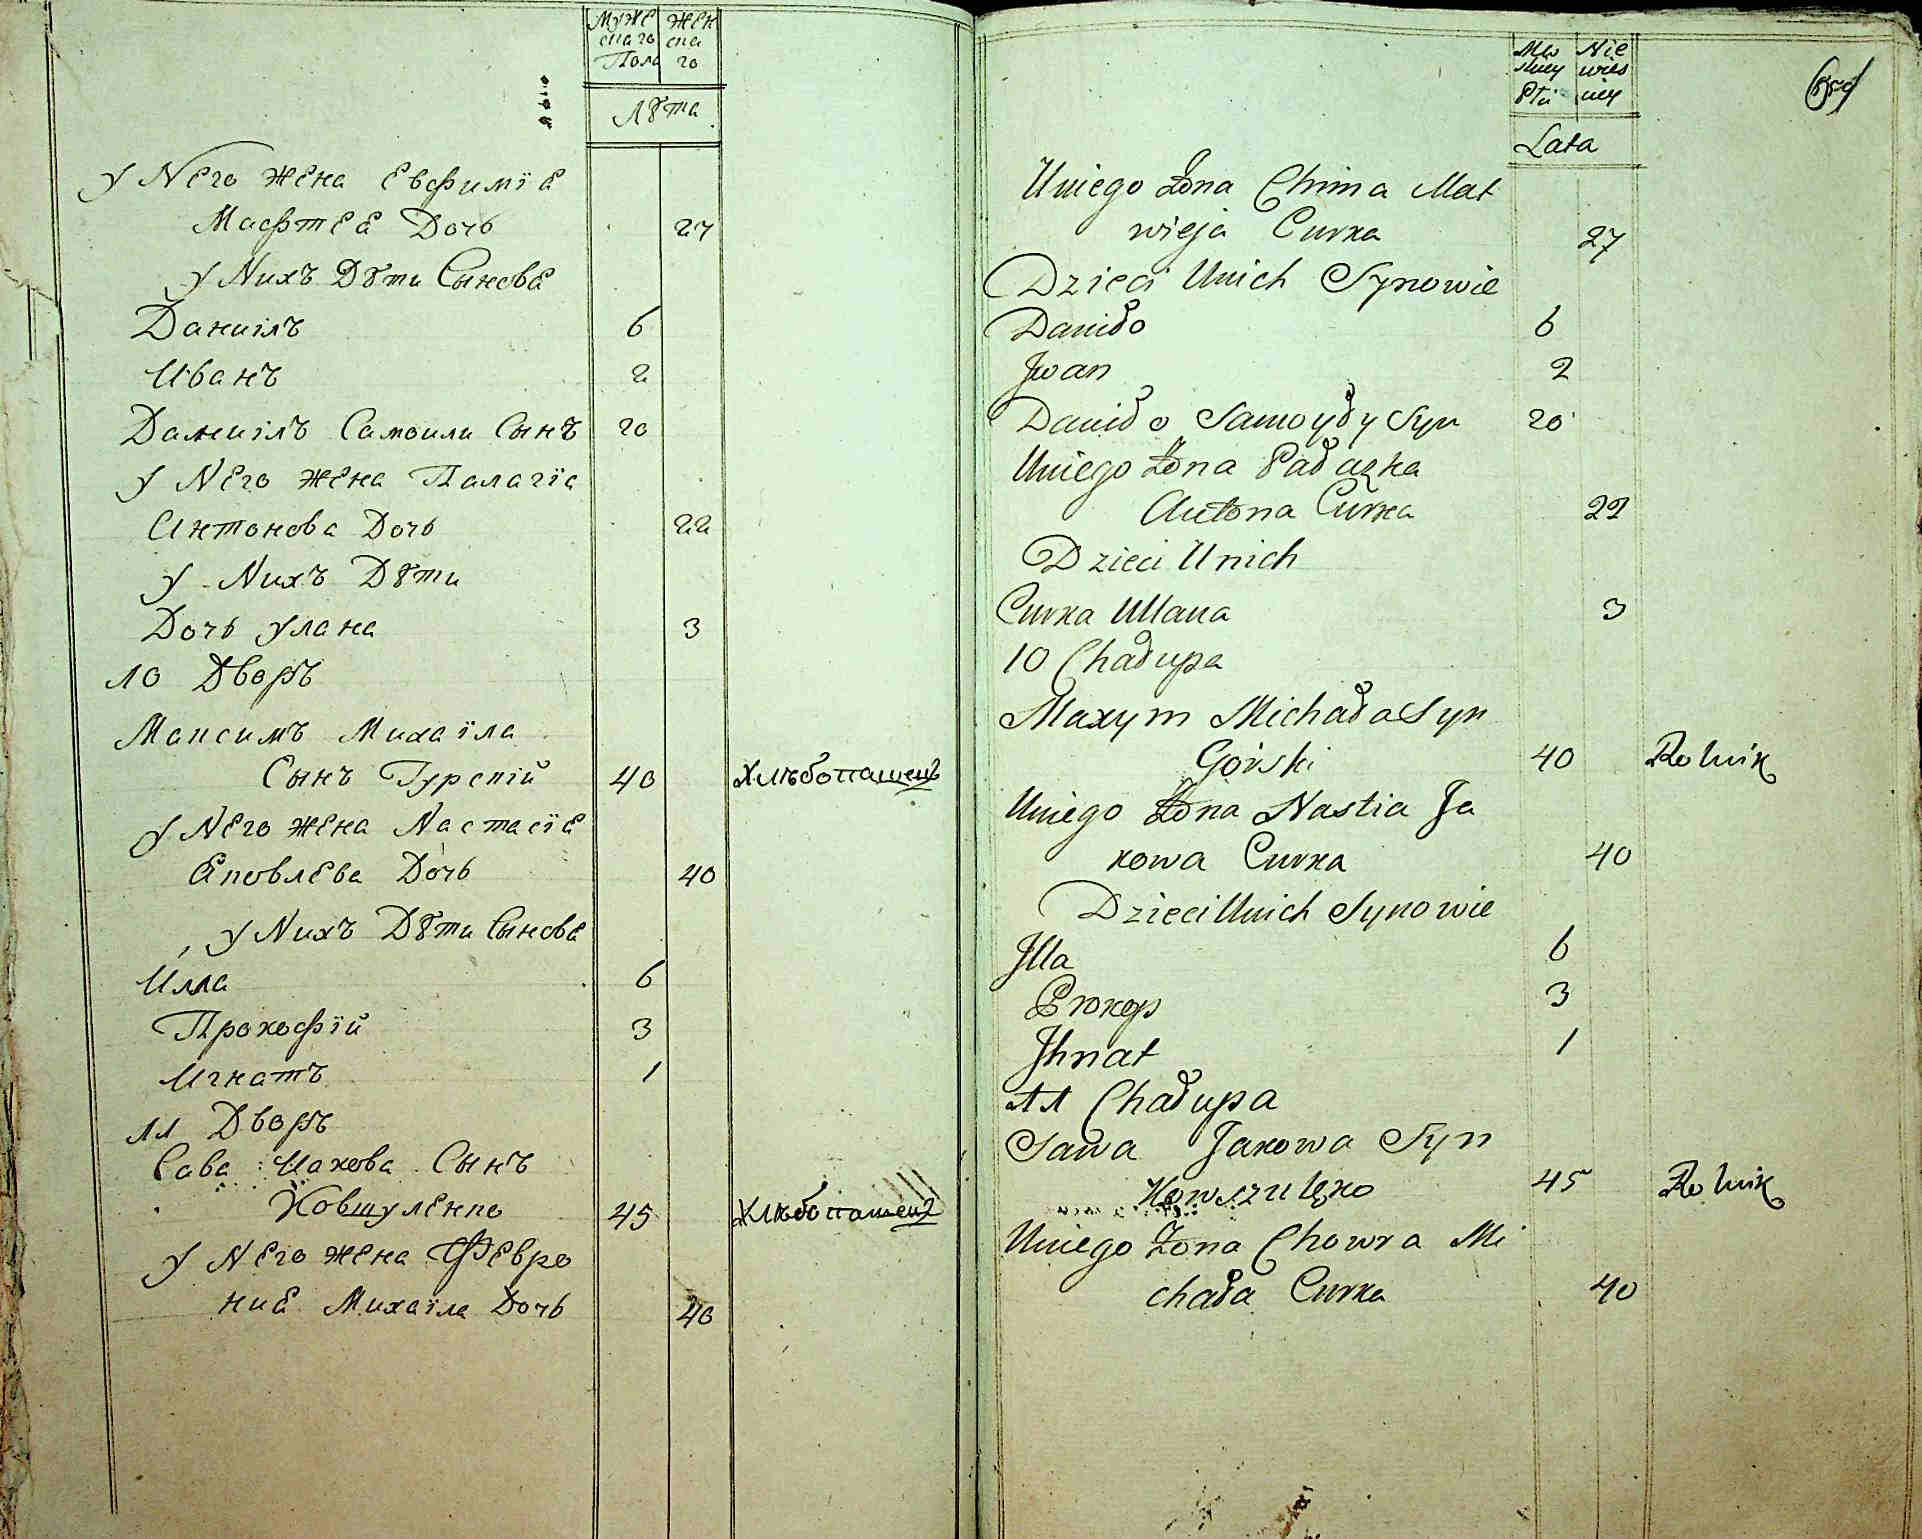 Муже
скаго
Пола
Жен
ска
го
Лѣта
у Него жена Евфиміа
Мафтеа Дочь 27
у Нихъ Дѣти Сынова
Даниілъ 6
Иванъ 2
Даниілъ Самоили Сынъ 20
у Него жена Палагіа
Антонова Дочь 22
у Нихъ Дѣти
Дочь Улана 3
10 Дворъ
Максимъ Михаіла
Сынъ Гурскій 40 Хлѣбопашецъ
у Него жена Настасіа
Яковлева Дочь 40
у Нихъ Дѣти Сынова
Илла 6
Прокофій 3
Игнатъ 1
11 Дворъ
Сава Иакова Сынъ
Ковшуленко 45 Хлѣбопашецъ
у Него жена Февро
ниа Михаіла Дочь 40
Mę
skiey
Płci
Nie
wies
ciey
Lata
Uniego Żona Chima Mat
wieja Curka 27
Dzieci Unich Synowie
Daniło 6
Jwan 2
Daniło Samoyły Syn 20
Uniego Żona Pałaszka
Antona Curka 22
Dzieci Unich
Curka Ullana 3
10 Chałupa
Maxym Michała Syn
Górski 40 Rolnik
Uniego Żona Nastia Ja
kowa Curka 40
Dzieci Unich Synowie
Jlla 6
Prokop 3
Jhnat 1
11 Chałupa
Sawa Jakowa Syn
Kowszulęko 45 Rolnik
Uniego Żona Chowra Mi
chała Curka 40